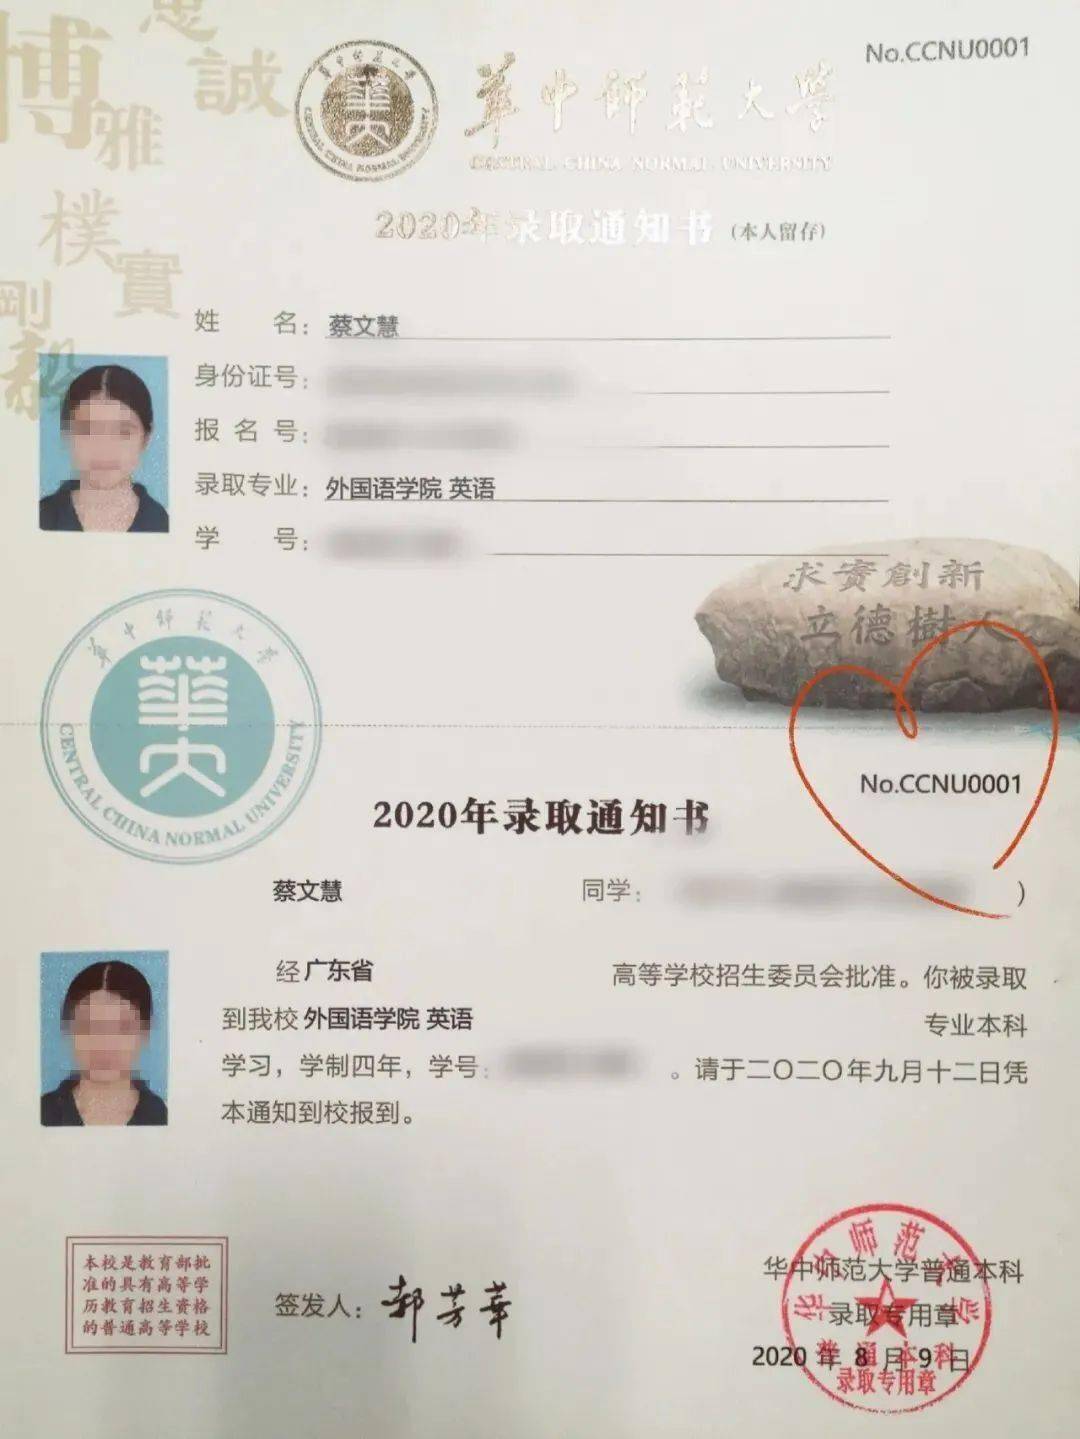 忠
誠
博
雅
樸
實
剛
毅
華中師範大學
CENTRAL CHINA NORMAL UNIVERSITY
華中師範大學
CENTRAL CHINA NORMAL UNIVERSITY
No.CCNU0001
2020年录取通知书(本人留存)
姓 名: 蔡文慧
身份证号:
报 名 号:
录取专业: 外国语学院 英语
学 号:
求實創新
立德樹人
華中師範大學
華大
CENTRAL CHINA NORMAL UNIVERSITY
No.CCNU0001
2020年录取通知书
蔡文慧 同学: )
经 广东省 高等学校招生委员会批准。你被录取
到我校 外国语学院 英语 专业本科
学习，学制四年，学号: 。请于二〇二〇年九月十二日凭
本通知到校报到。
本校是教育部批
准的具有高等学
历教育招生资格
的普通高等学校
签发人: 郝芳華
华中师范大学普通本科
录取专用章
2020 年 8 月 9 日
华中师范大学
普通本科
录取专用章